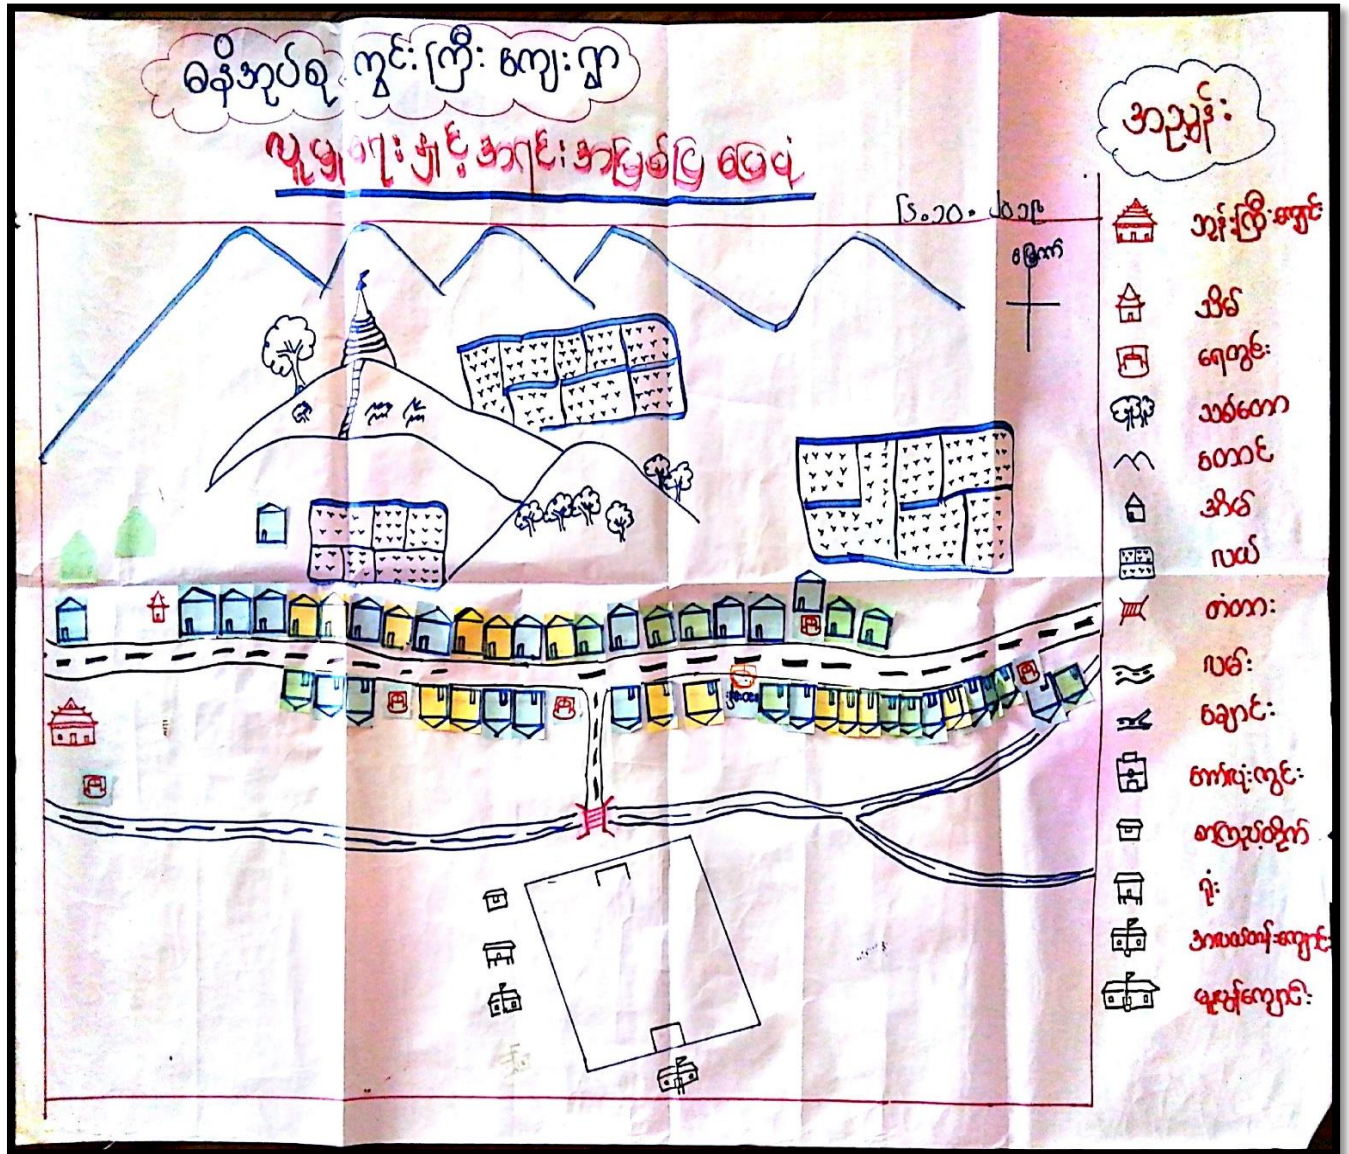 ဓနိအုပ်စု ကွင်းကြီး ကျေးရွာ
လူမှုရေးနှင့် အရင်းအမြစ်ပြ မြေပုံ
မြောက်
အညွှန်း
ဘုန်းကြီးကျောင်း
သိမ်
ရေတွင်း
သစ်တော
တောင်
အိမ်
လယ်
တံတား
လမ်း
ချောင်း
ဘော်လုံးကွင်း
စာကြည့်တိုက်
ရုံး
အလယ်တန်းကျောင်း
မူလွန်ကျောင်း